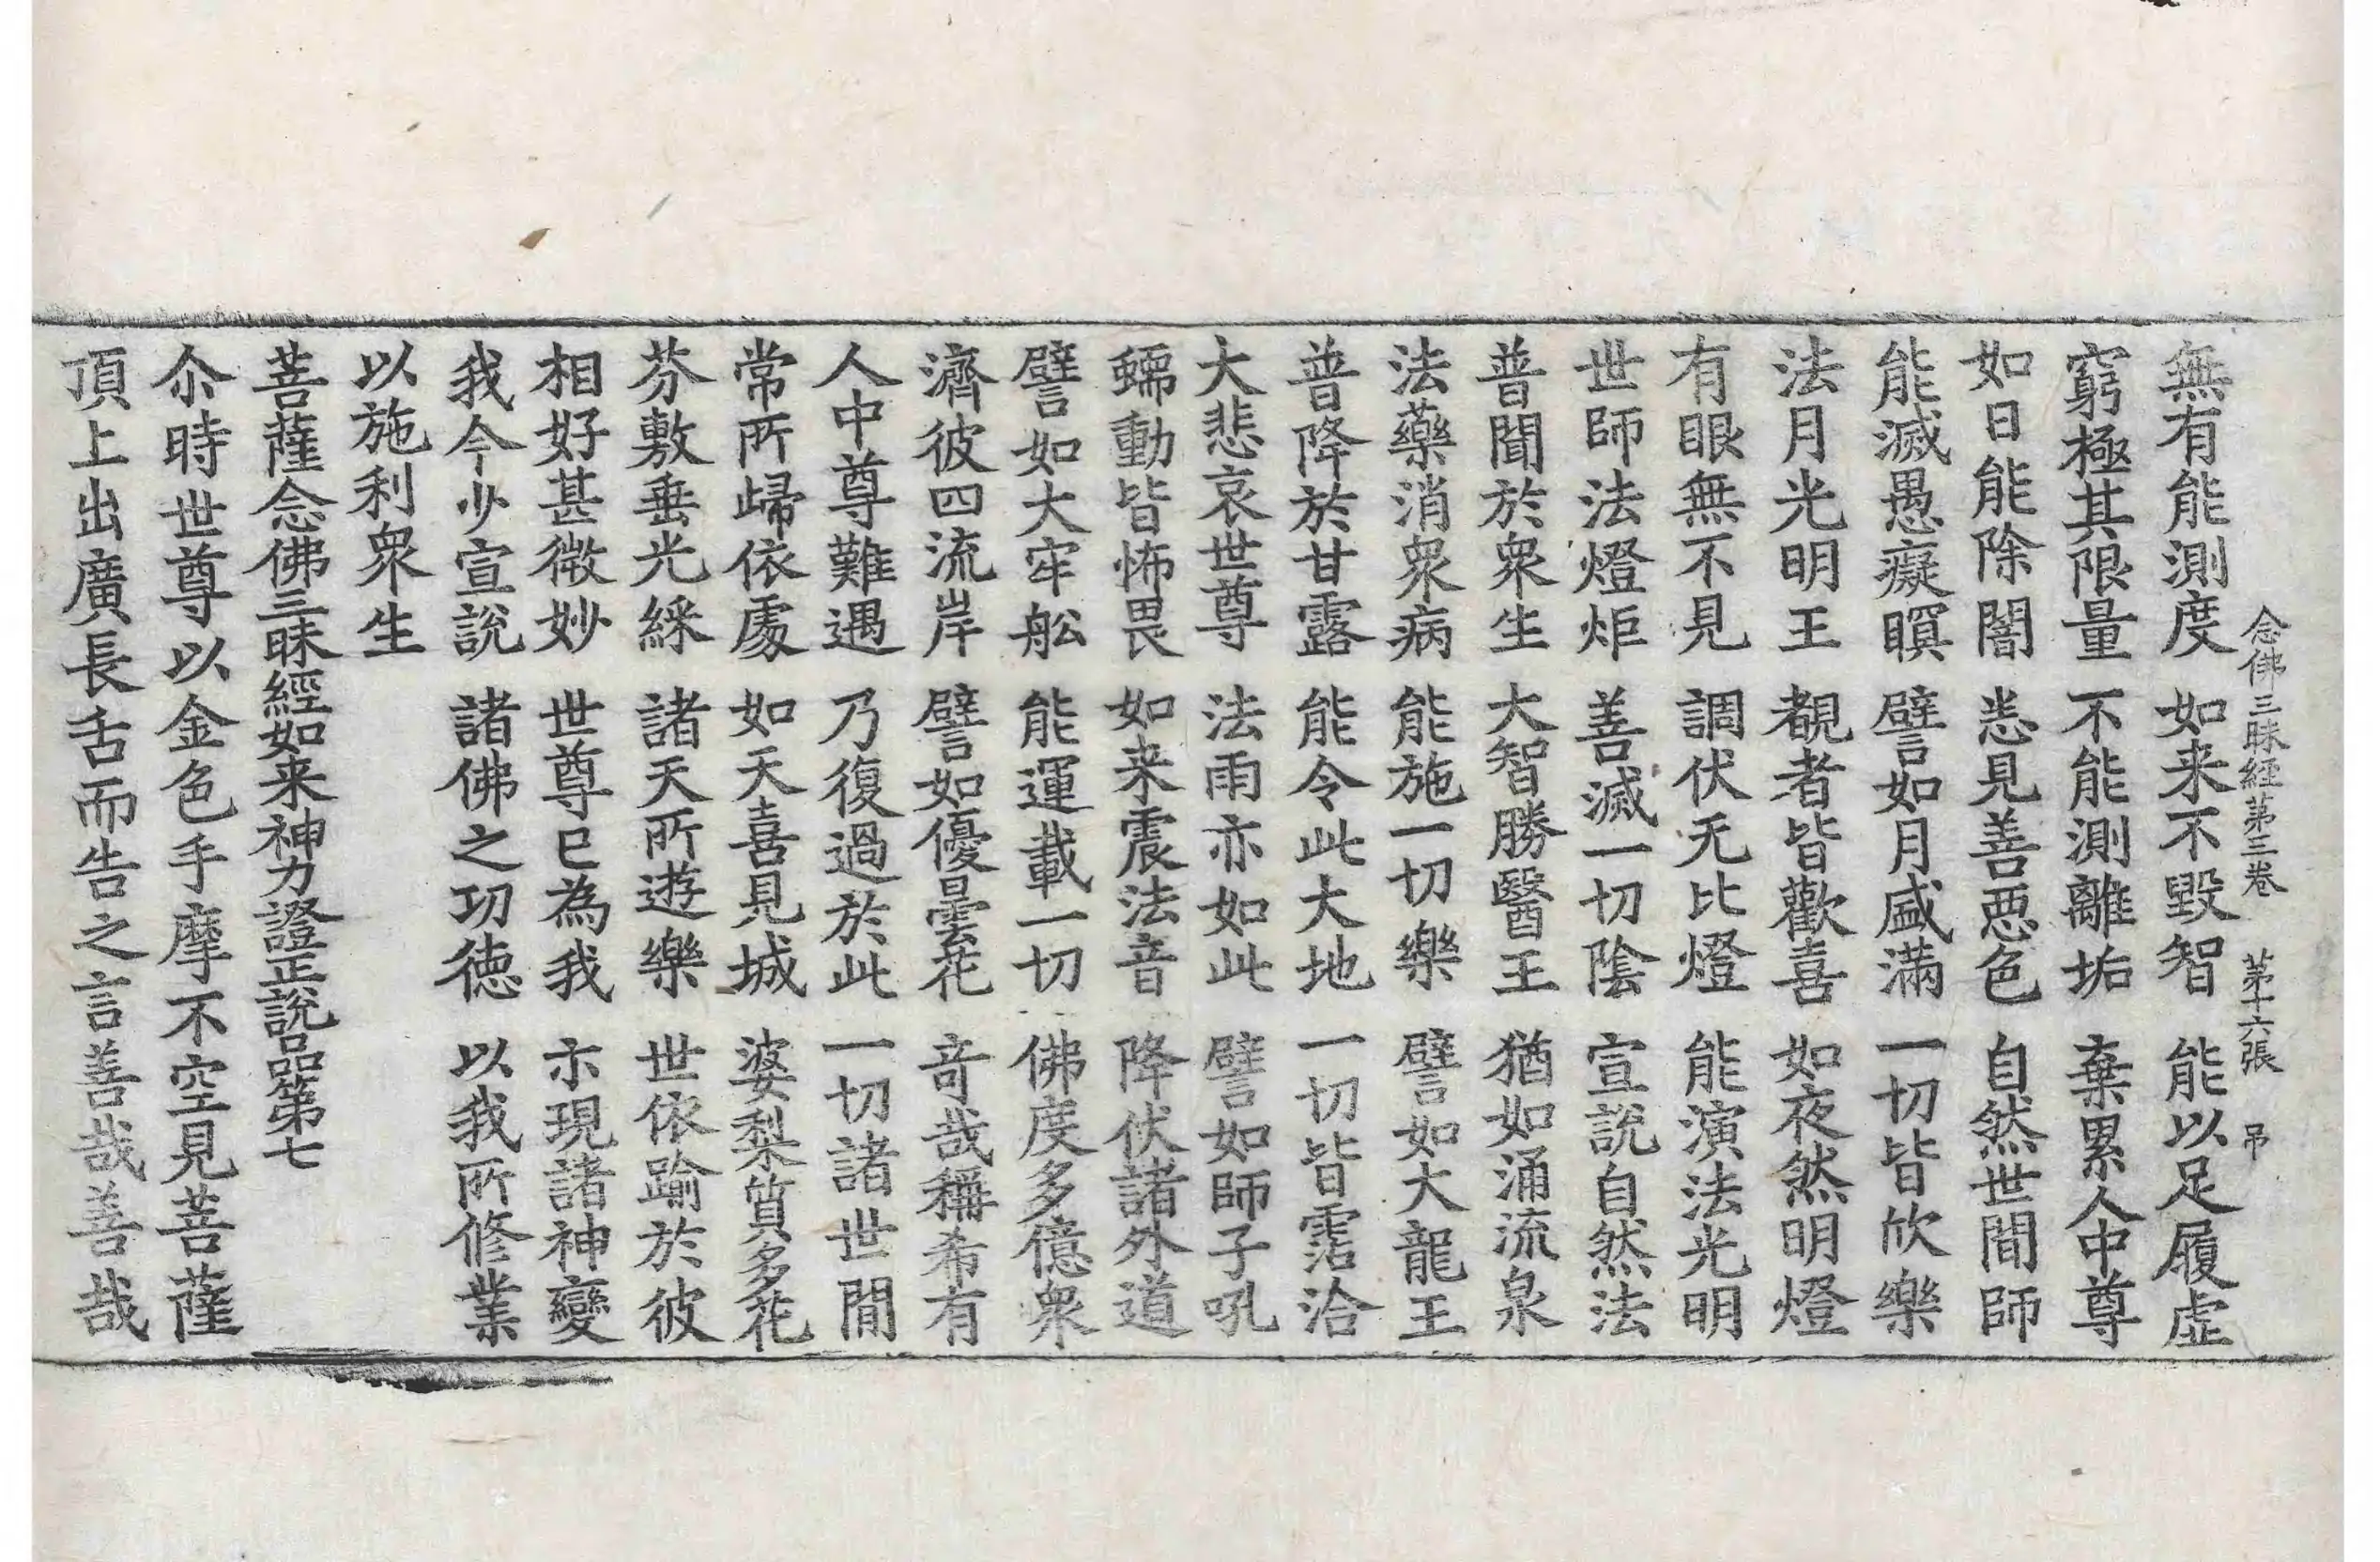 念佛三昧経第三卷 第十六張 弔
無有能測度 如来不毀智 能以足履虛
窮極其限量 不能測離垢 棄累人中尊
如日能除闇 悉見善惡色 自然世間師
能滅愚癡瞑 譬如月盛滿 一切皆欣樂
法月光明王 覩者皆歡喜 如夜然明燈
有眼無不見 調伏无比燈 能演法光明
世師法燈炬 善滅一切陰 宣說自然法
普聞於衆生 大智勝醫王 猶如涌流泉
法藥消衆病 能施一切樂 譬如大龍王
普降於甘露 能令此大地 一切皆霑洽
大悲哀世尊 法雨亦如此 譬如師子吼
蠕動皆怖畏 如来震法音 降伏諸外道
譬如大牢舩 能運載一切 佛度多億衆
濟彼四流岸 譬如優曇花 奇哉稱希有
人中尊難遇 乃復過於此 一切諸世間
常所歸依處 如天喜見城 婆梨質多花
芬敷垂光綵 諸天所遊樂 世依踰於彼
相好甚微妙 世尊已為我 亦現諸神變
我今少宣說 諸佛之功徳 以我所修業
以施利衆生
菩薩念佛三昧經如来神力證正說品第七
尒時世尊以金色手摩不空見菩薩
頂上出廣長舌而告之言善哉善哉